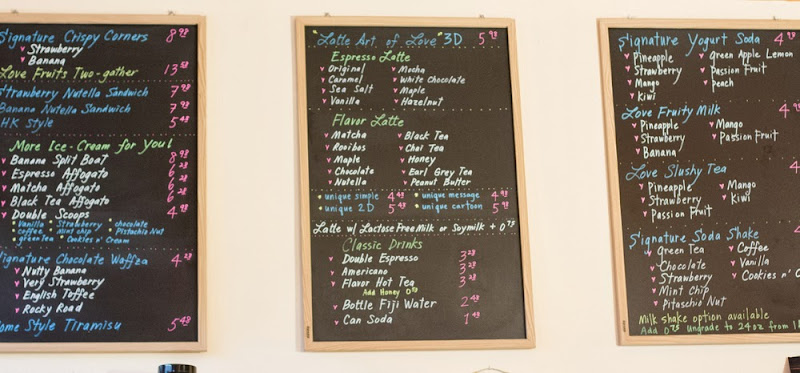 Signature Crispy Corners 8 98
Strawberry
Banana
Love Fruits Two-gather 13 58
Strawberry Nutella Sandwich 7 98
Banana Nutella Sandwich 7 98
H.K Style 5 48
More Ice-Cream for You!
Banana Split Boat 8 98
Espresso Affogato 6 28
Matcha Affogato 6 28
Black Tea Affogato 6 28
Double Scoops 4 98
Vanilla Strawberry chocolate
coffee mint chip Pistachio Nut
green tea Cookies n' Cream
Signature Chocolate Waffza 4 28
Nutty Banana
Very Strawberry
English Toffee
Rocky Road
Home Style Tiramisu 5 48
"Latte Art of Love" 3D 5 98
Espresso Latte
Original Mocha
Caramel White Chocolate
Sea Salt Maple
Vanilla Hazelnut
Flavor Latte
Matcha Black Tea
Rooibos Chai Tea
Maple Honey
Chocolate Earl Grey Tea
Nutella Peanut Butter
unique simple 4 48 unique message 4 98
unique 2D 5 48 unique cartoon 5 48
Latte w/ Lactose Free Milk or Soymilk + 0 75
Classic Drinks
Double Espresso 3 28
Americano 3 28
Flavor Hot Tea 3 28
Add Honey
Bottle Fiji Water 2 48
Can Soda 1 48
Signature Yogurt Soda 4 98
Pineapple Green Apple Lemon
Strawberry Passion Fruit
Mango peach
Kiwi
Love Fruity Milk 4
Pineapple Mango
Strawberry Passion Fruit
Banana
Love Slushy Tea 4
Pineapple Mango
Strawberry Kiwi
Passion Fruit
Signature Soda Shake 4
Green Tea Coffee
Chocolate Vanilla
Strawberry Cookies n'
Mint Chip
Pitaschio Nut
Milk shake option available
Add 0 75 Ungrade to 24oz from